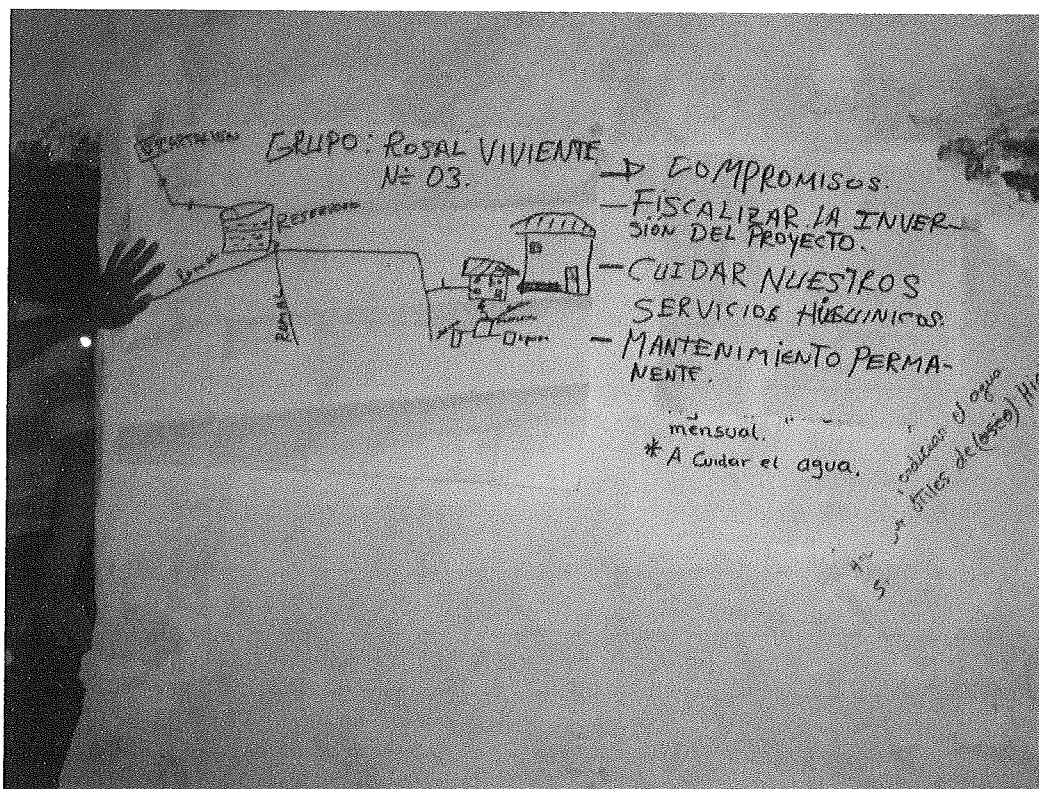 CAPTACION
GRUPO: ROSAL VIVIENTE
Nº 03.
RESERVORIO
Ramal
RAMAL
→ COMPROMISOS.
- FISCALIZAR LA INVER-
SIÓN DEL PROYECTO.
- CUIDAR NUESTROS
SERVICIOS HIGUINICOS.
- MANTENIMIENTO PERMA-
NENTE.
mensual.
* A Cuidar el agua.
el agua
útiles de (aseo)